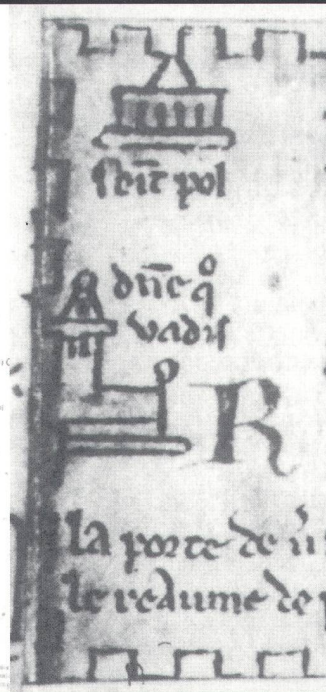 seīt pol
dñe qͦ
vadis
R
la porte de u᷑
le reaume de